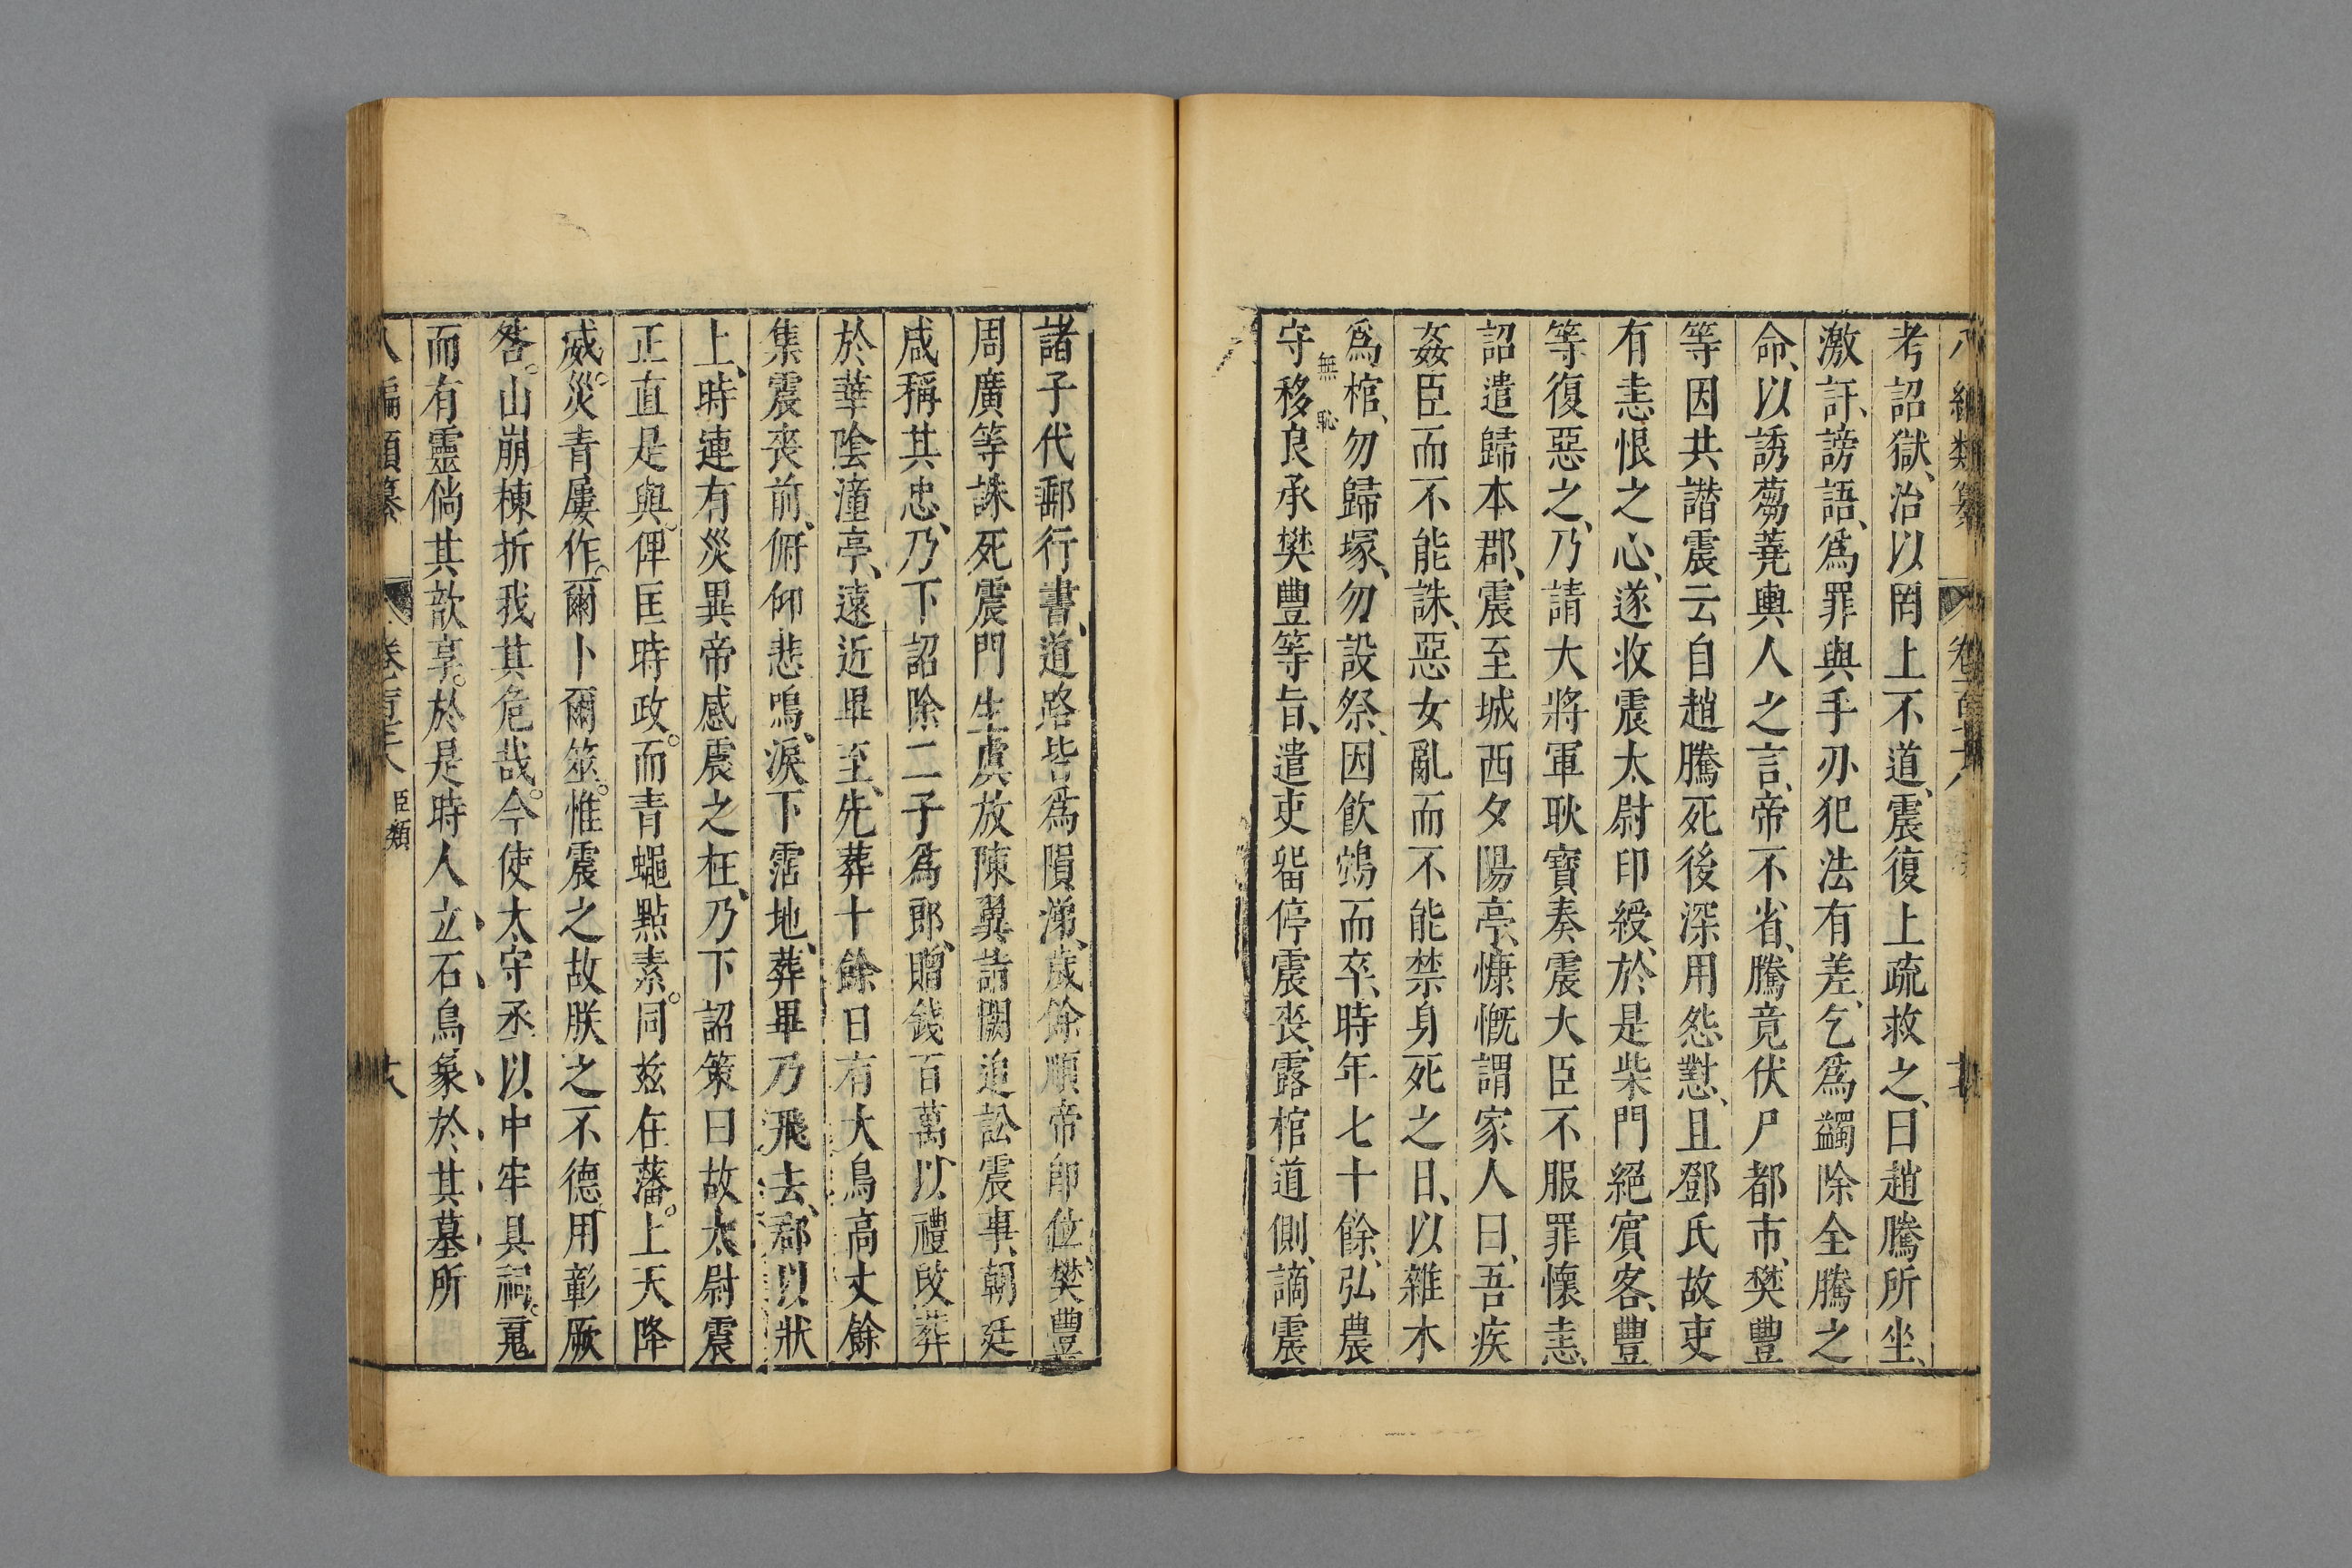 八編類纂 卷百六八
考詔獄、治以罔上不道、震復上疏救之、曰趙騰所坐、
激訐、謗語、爲罪與手刃犯法有差、乞爲蠲除全騰之
命、以誘蒭蕘輿人之言、帝不省、騰竟伏尸都市、樊豐
等因共譖震云自趙騰死後深用怨懟、且鄧氏故吏
有恚恨之心、遂收震太尉印綬、於是柴門絕賓客、豐
等復惡之、乃請大將軍耿寶奏震大臣不服罪懷恚、
詔遣歸本郡、震至城西夕陽亭、慷慨謂家人曰、吾疾
姦臣而不能誅、惡女亂而不能禁身死之日、以雜木
爲棺、勿歸塚、勿設祭、因飲鴆而卒、時年七十餘、弘農
無恥
守移良承樊豐等旨、遣吏畱停震喪、露棺道側、謫震
諸子代郵行書、道路皆爲隕涕、歲餘順帝即位、樊豐
周廣等誅死震門生虞放陳翼詣闕追訟震事、朝廷
咸稱其忠、乃下詔除二子爲郎、贈錢百萬、以禮改葬
於華陰潼亭、遠近畢至、先葬十餘日有大鳥高丈餘
集震喪前、俯仰悲鳴、淚下霑地、葬畢乃飛去、郡以狀
上、時連有災異帝感震之枉、乃下詔策曰故太尉震
正直是與。俾匡時政。而青蠅點素。同玆在藩。上天降
威。災眚屢作。爾卜爾筮。惟震之故朕之不德、用彰厥
咎。山崩棟折我其危哉。今使太守丞以中牢具祠。䰟
而有靈倘其歆享。於是時人立石鳥象於其墓所
八編類纂 卷 臣類